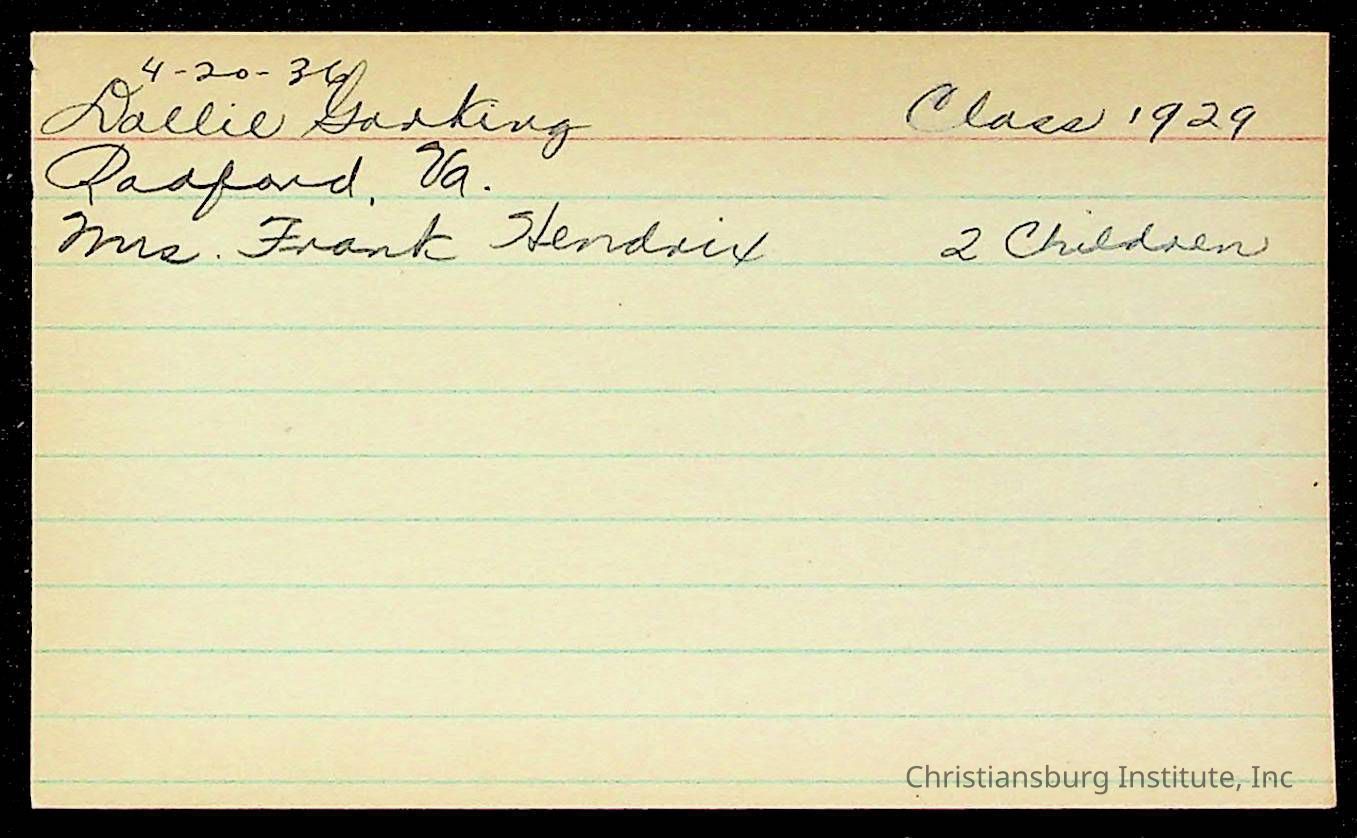 4-20-36
Dallie Gorking Class 1929
Radford, Va.
Mrs. Frank Hendrix 2 Children
Christiansburg Institute, Inc